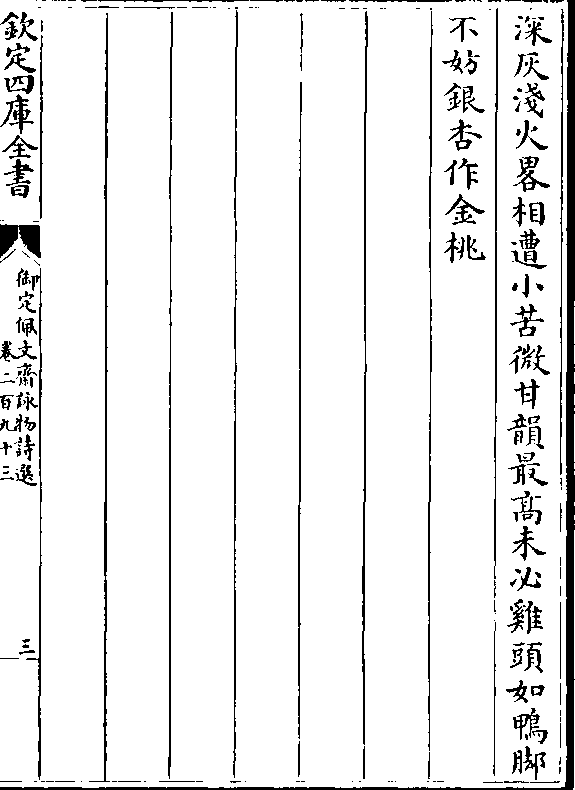 深灰淺火畧相遭小苦微甘韻最髙未必雞頭如鴨脚
不妨銀杏作金桃
欽定四庫全書
御定佩文齋詠物詩選
卷二百九十三
三